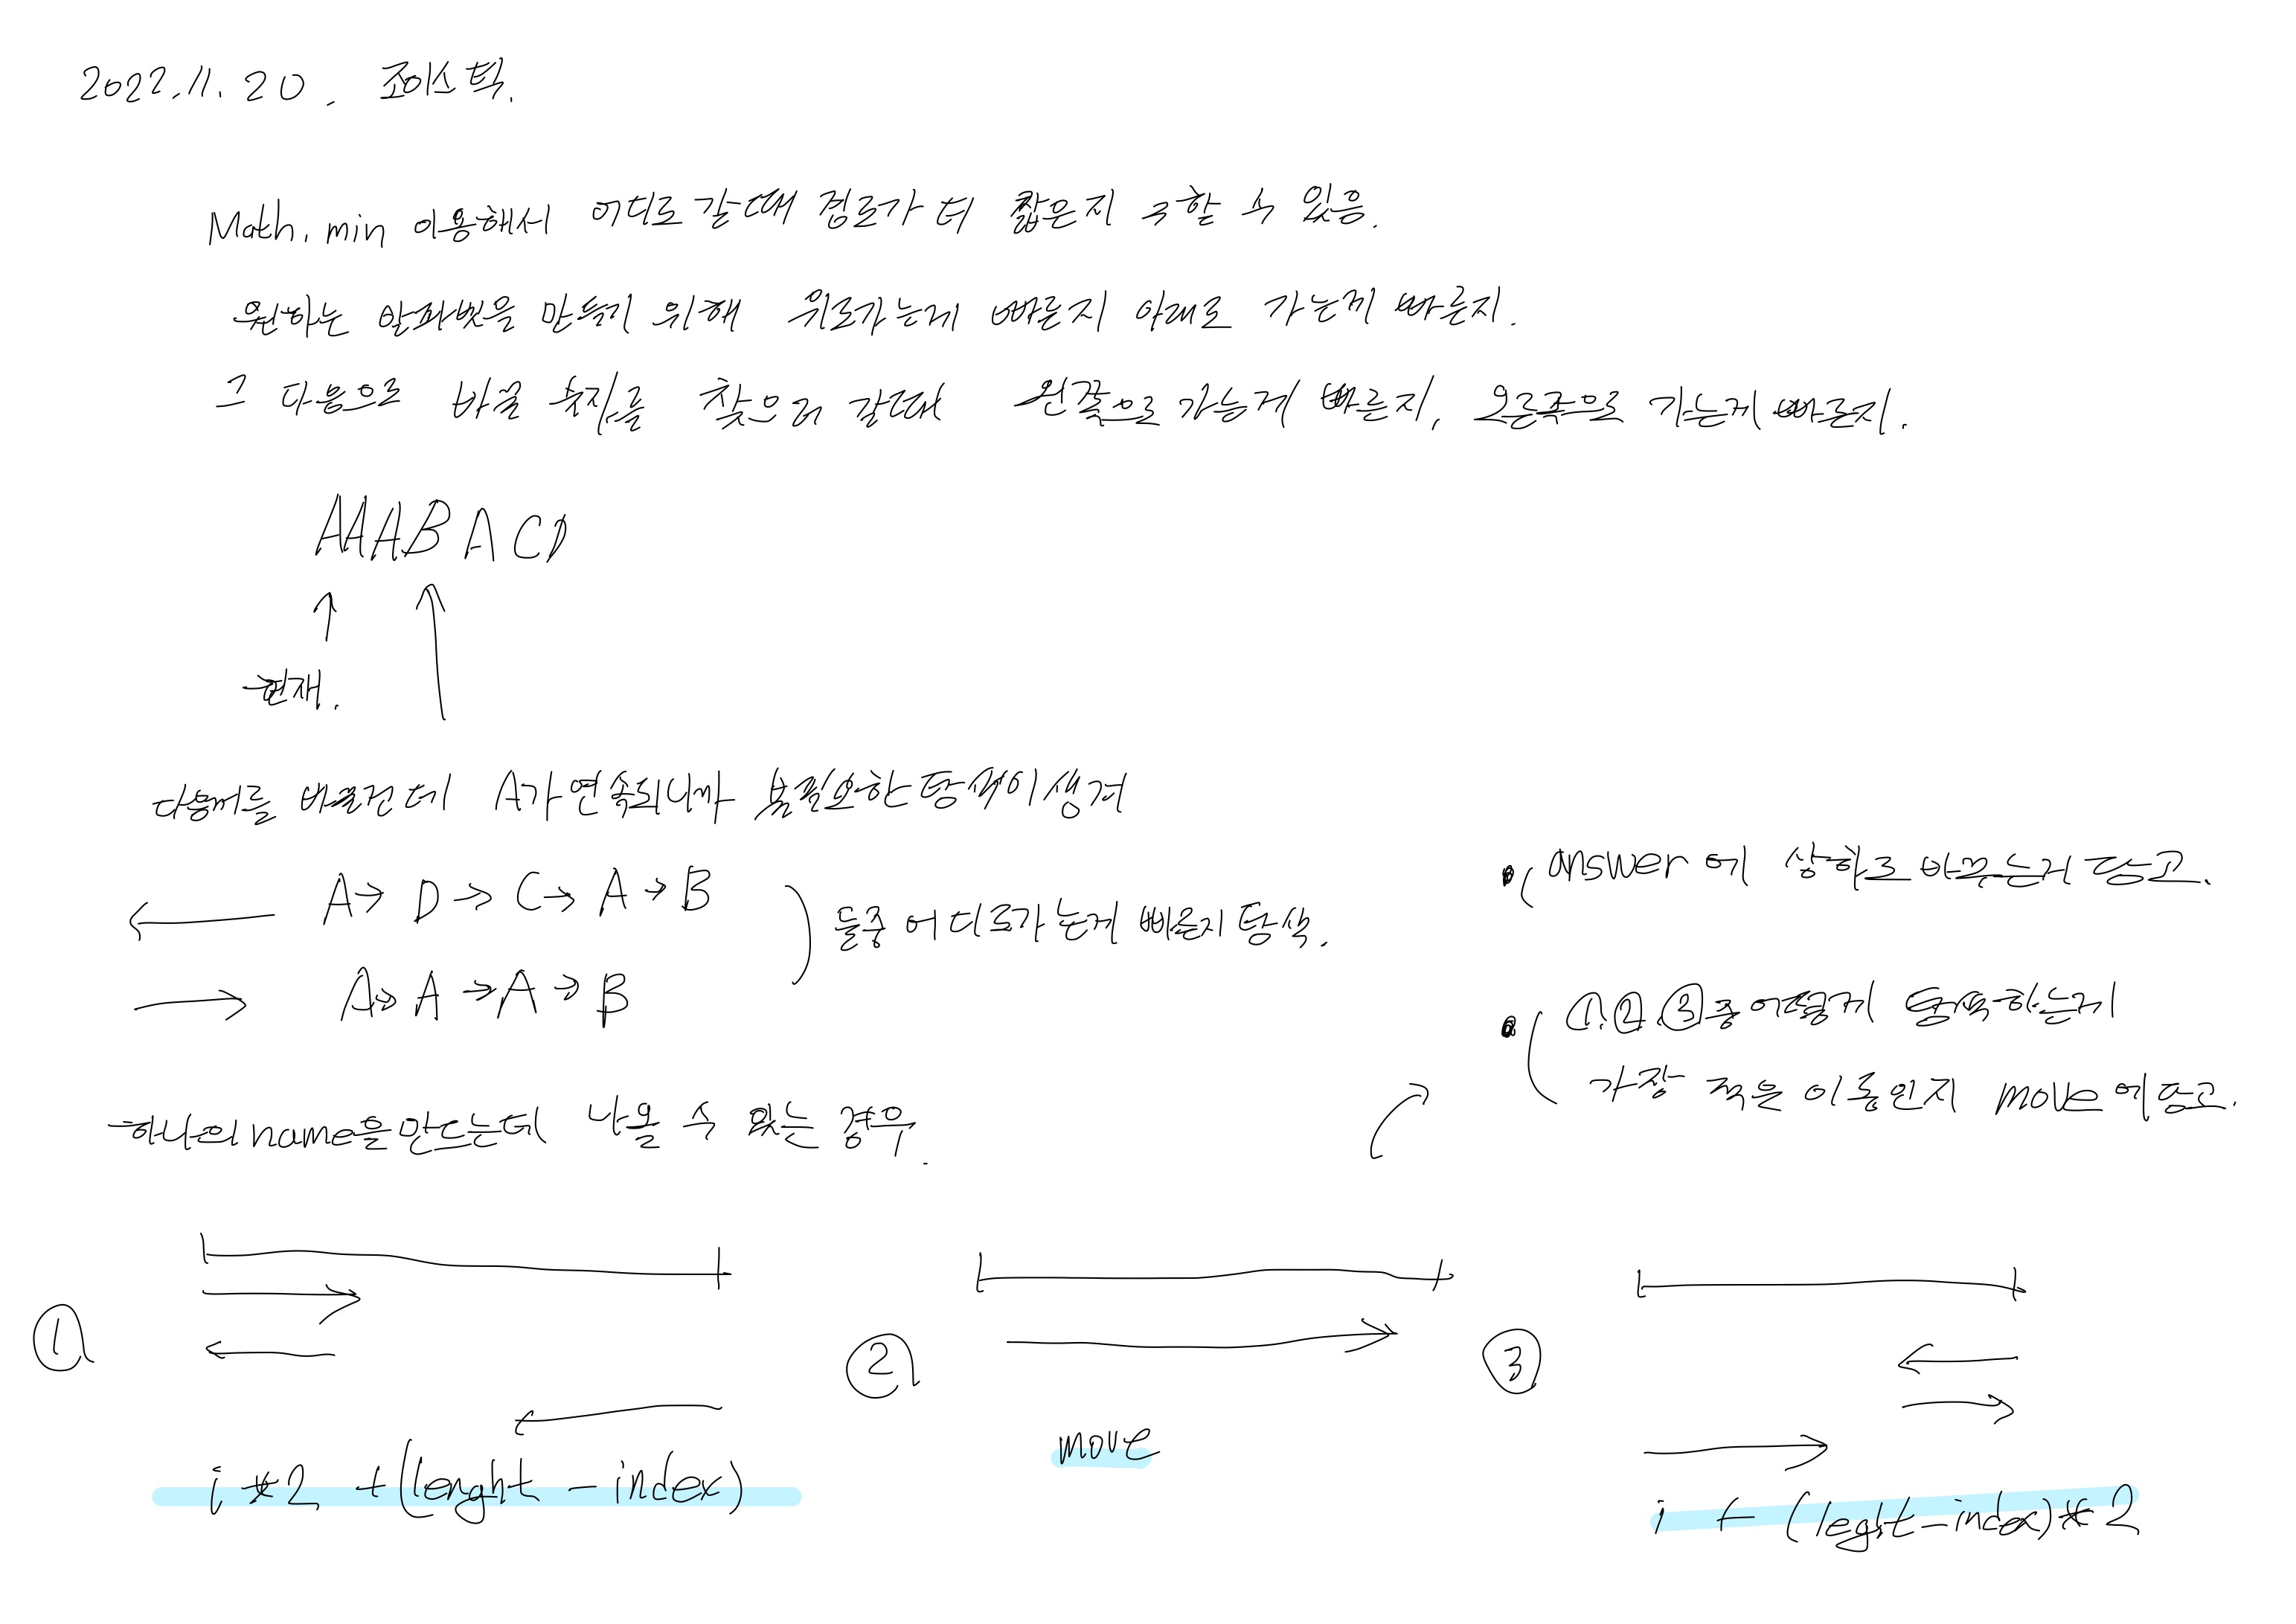 2022.11.20. 조이스틱.
Math.min 이용해서 어디로 갈때 경로가 더 짧은지 구할 수 있음.
원하는 알파벳을 만들기 위해 위로가는게 빠른지 아래로 가는게 빠른지.
그 다음으로 바꿀 숫자를 찾으러 갈때 왼쪽으로 가는게 빠른지, 오른쪽으로 가는게 빠른지.
AAABACD
현재.
다음꺼를 바꿀건데 A가 연속되니까 불필요한 탐색이 생겨
← A→ D→ C→ A→ B
→ A→ A→ A→ B
둘중 어디로가는게 빠른지 탐색.
• answer에 상하로 바꾸는거 담고.
• ①.②.③중 어떻게 탐색하는게
가장 적은 이동인지 move에담고.
하나의 name을 만드는데 나올 수 있는 경우.
①
i*2 + (lenght - index)
②
move
③
i + (leght-index)*2